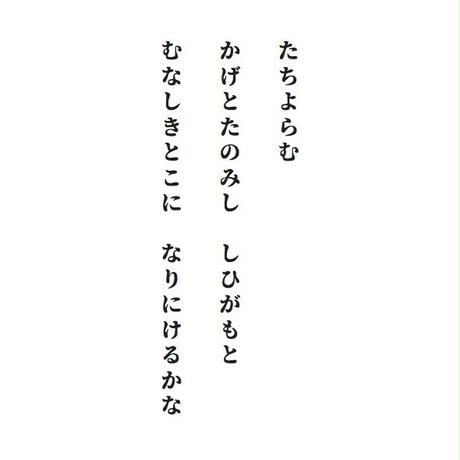 たちよらむ
かげとたのみし　しひがもと
むなしきとこに　なりにけるかな